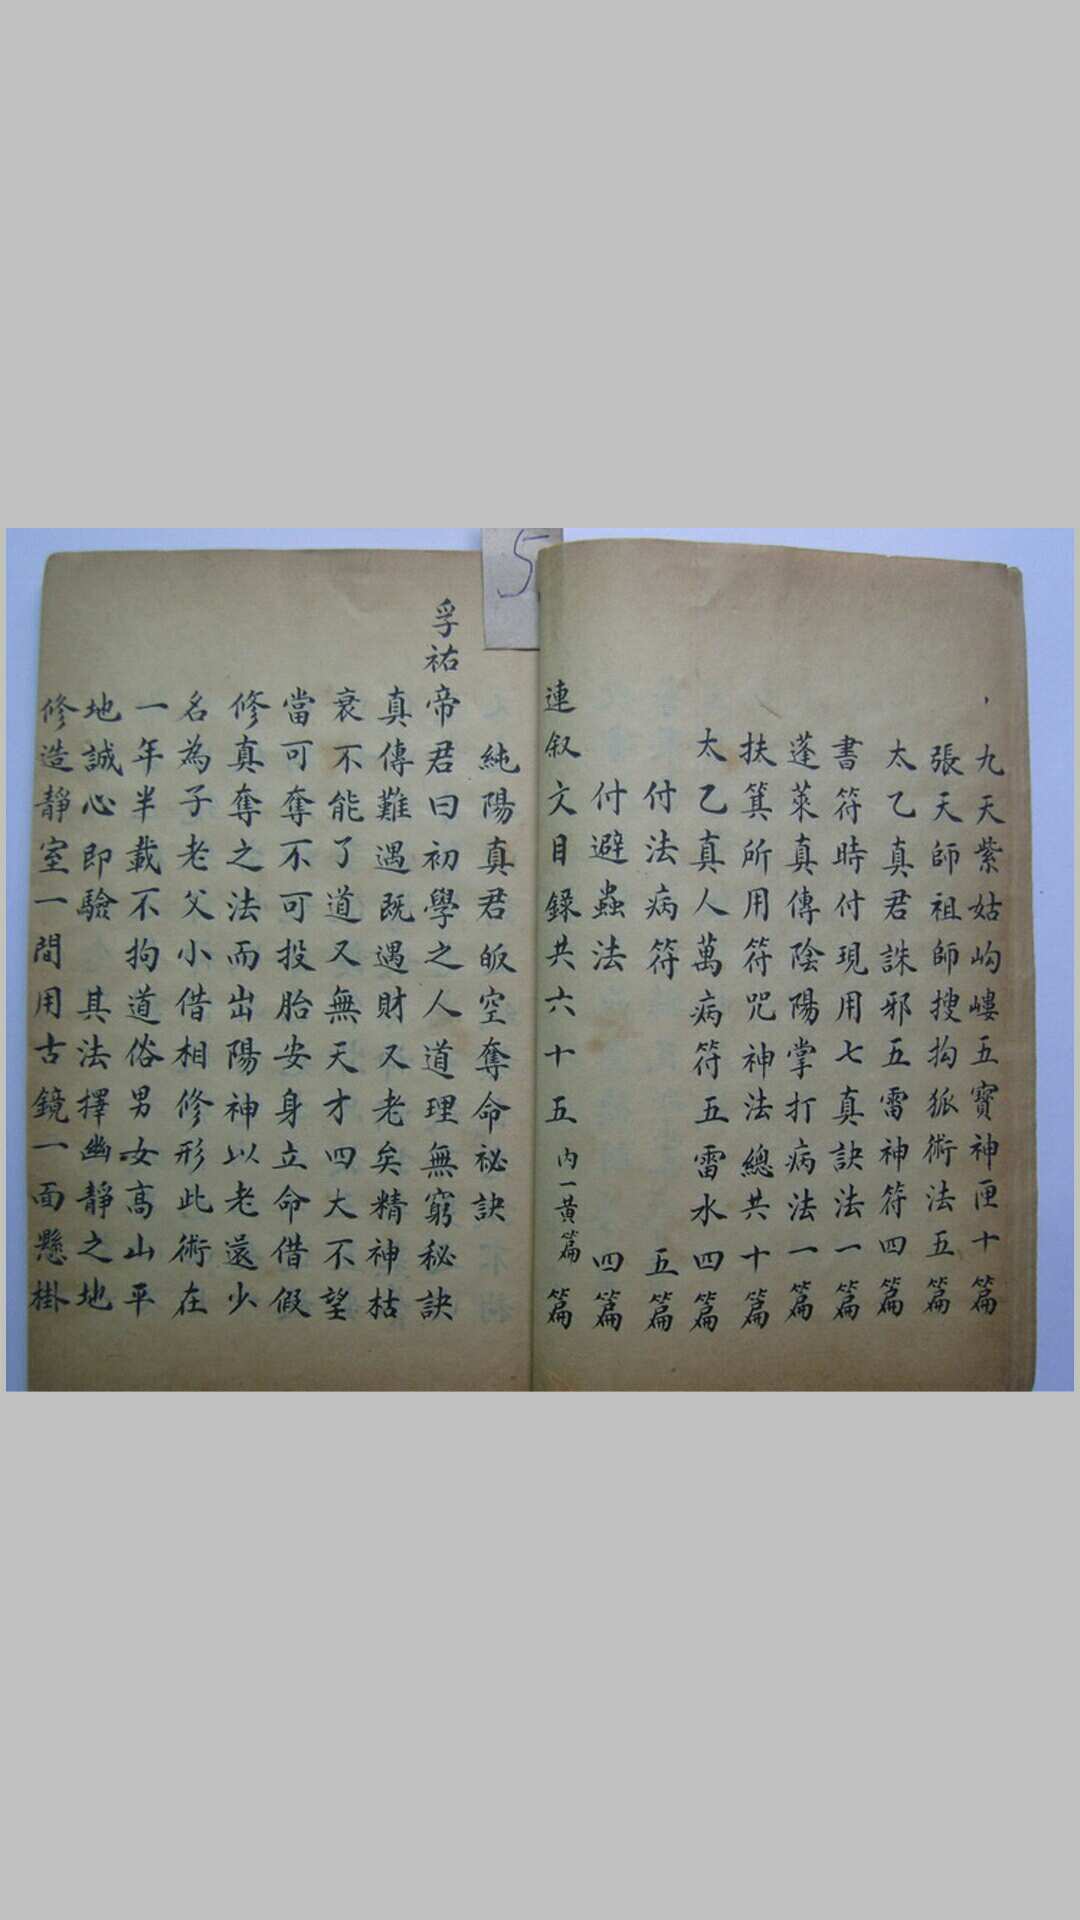 九天紫姑岣嶁五寶神匣十篇
張天師祖師搜拘狐術法五篇
太乙真君誅邪五雷神符四篇
書符時付現用七真訣法一篇
蓬萊真傳陰陽掌打病法一篇
扶箕所用符咒神法總共十篇
太乙真人萬病符五雷水四篇
付法病符五篇
付避蟲法四篇
連叙文目錄共六十五內一黃篇篇
5
純陽真君皈空奪命祕訣
孚祐帝君曰初學之人道理無窮秘訣
真傳難遇既遇財又老矣精神枯
衰不能了道又無天才四大不望
當可奪不可投胎安身立命借假
修真奪之法而出陽神以老還少
名為子老父小借相修形此術在
一年半載不拘道俗男女高山平
地誠心即驗 其法擇幽靜之地
修造靜室一間用古鏡一面懸掛